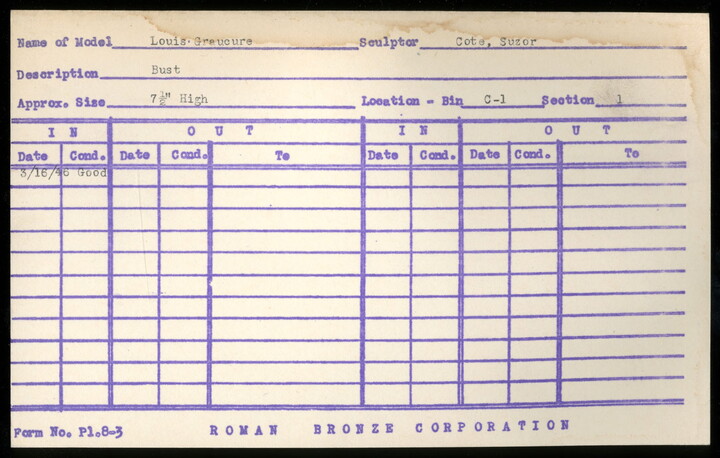 Name of Model Louis Graucure Sculptor Cote, Suzor
Description Bust
Approx. Size 7½" High Location - Bin C-1 Section 1
IN OUT IN OUT
Date Cond. Date Cond. To Date Cond. Date Cond. To
3/16/46 Good
Form No. Pl.8-3 ROMAN BRONZE CORPORATION